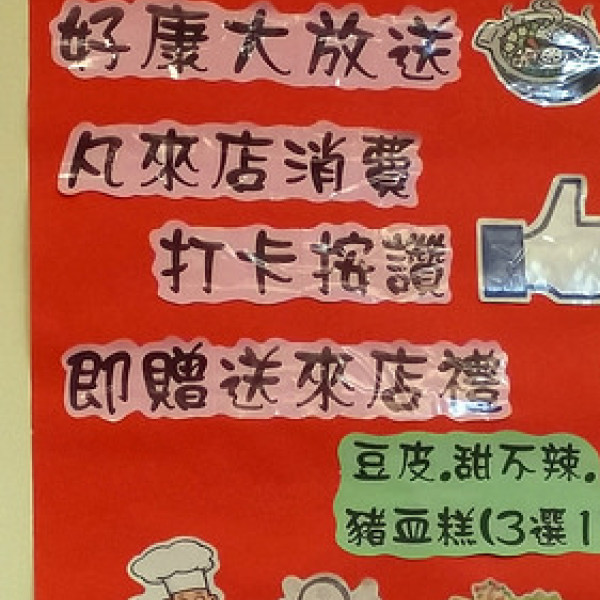 好康大放送
凡來店消費
打卡按讚
即贈送來店禮
豆皮.甜不辣.
豬血糕(3選1